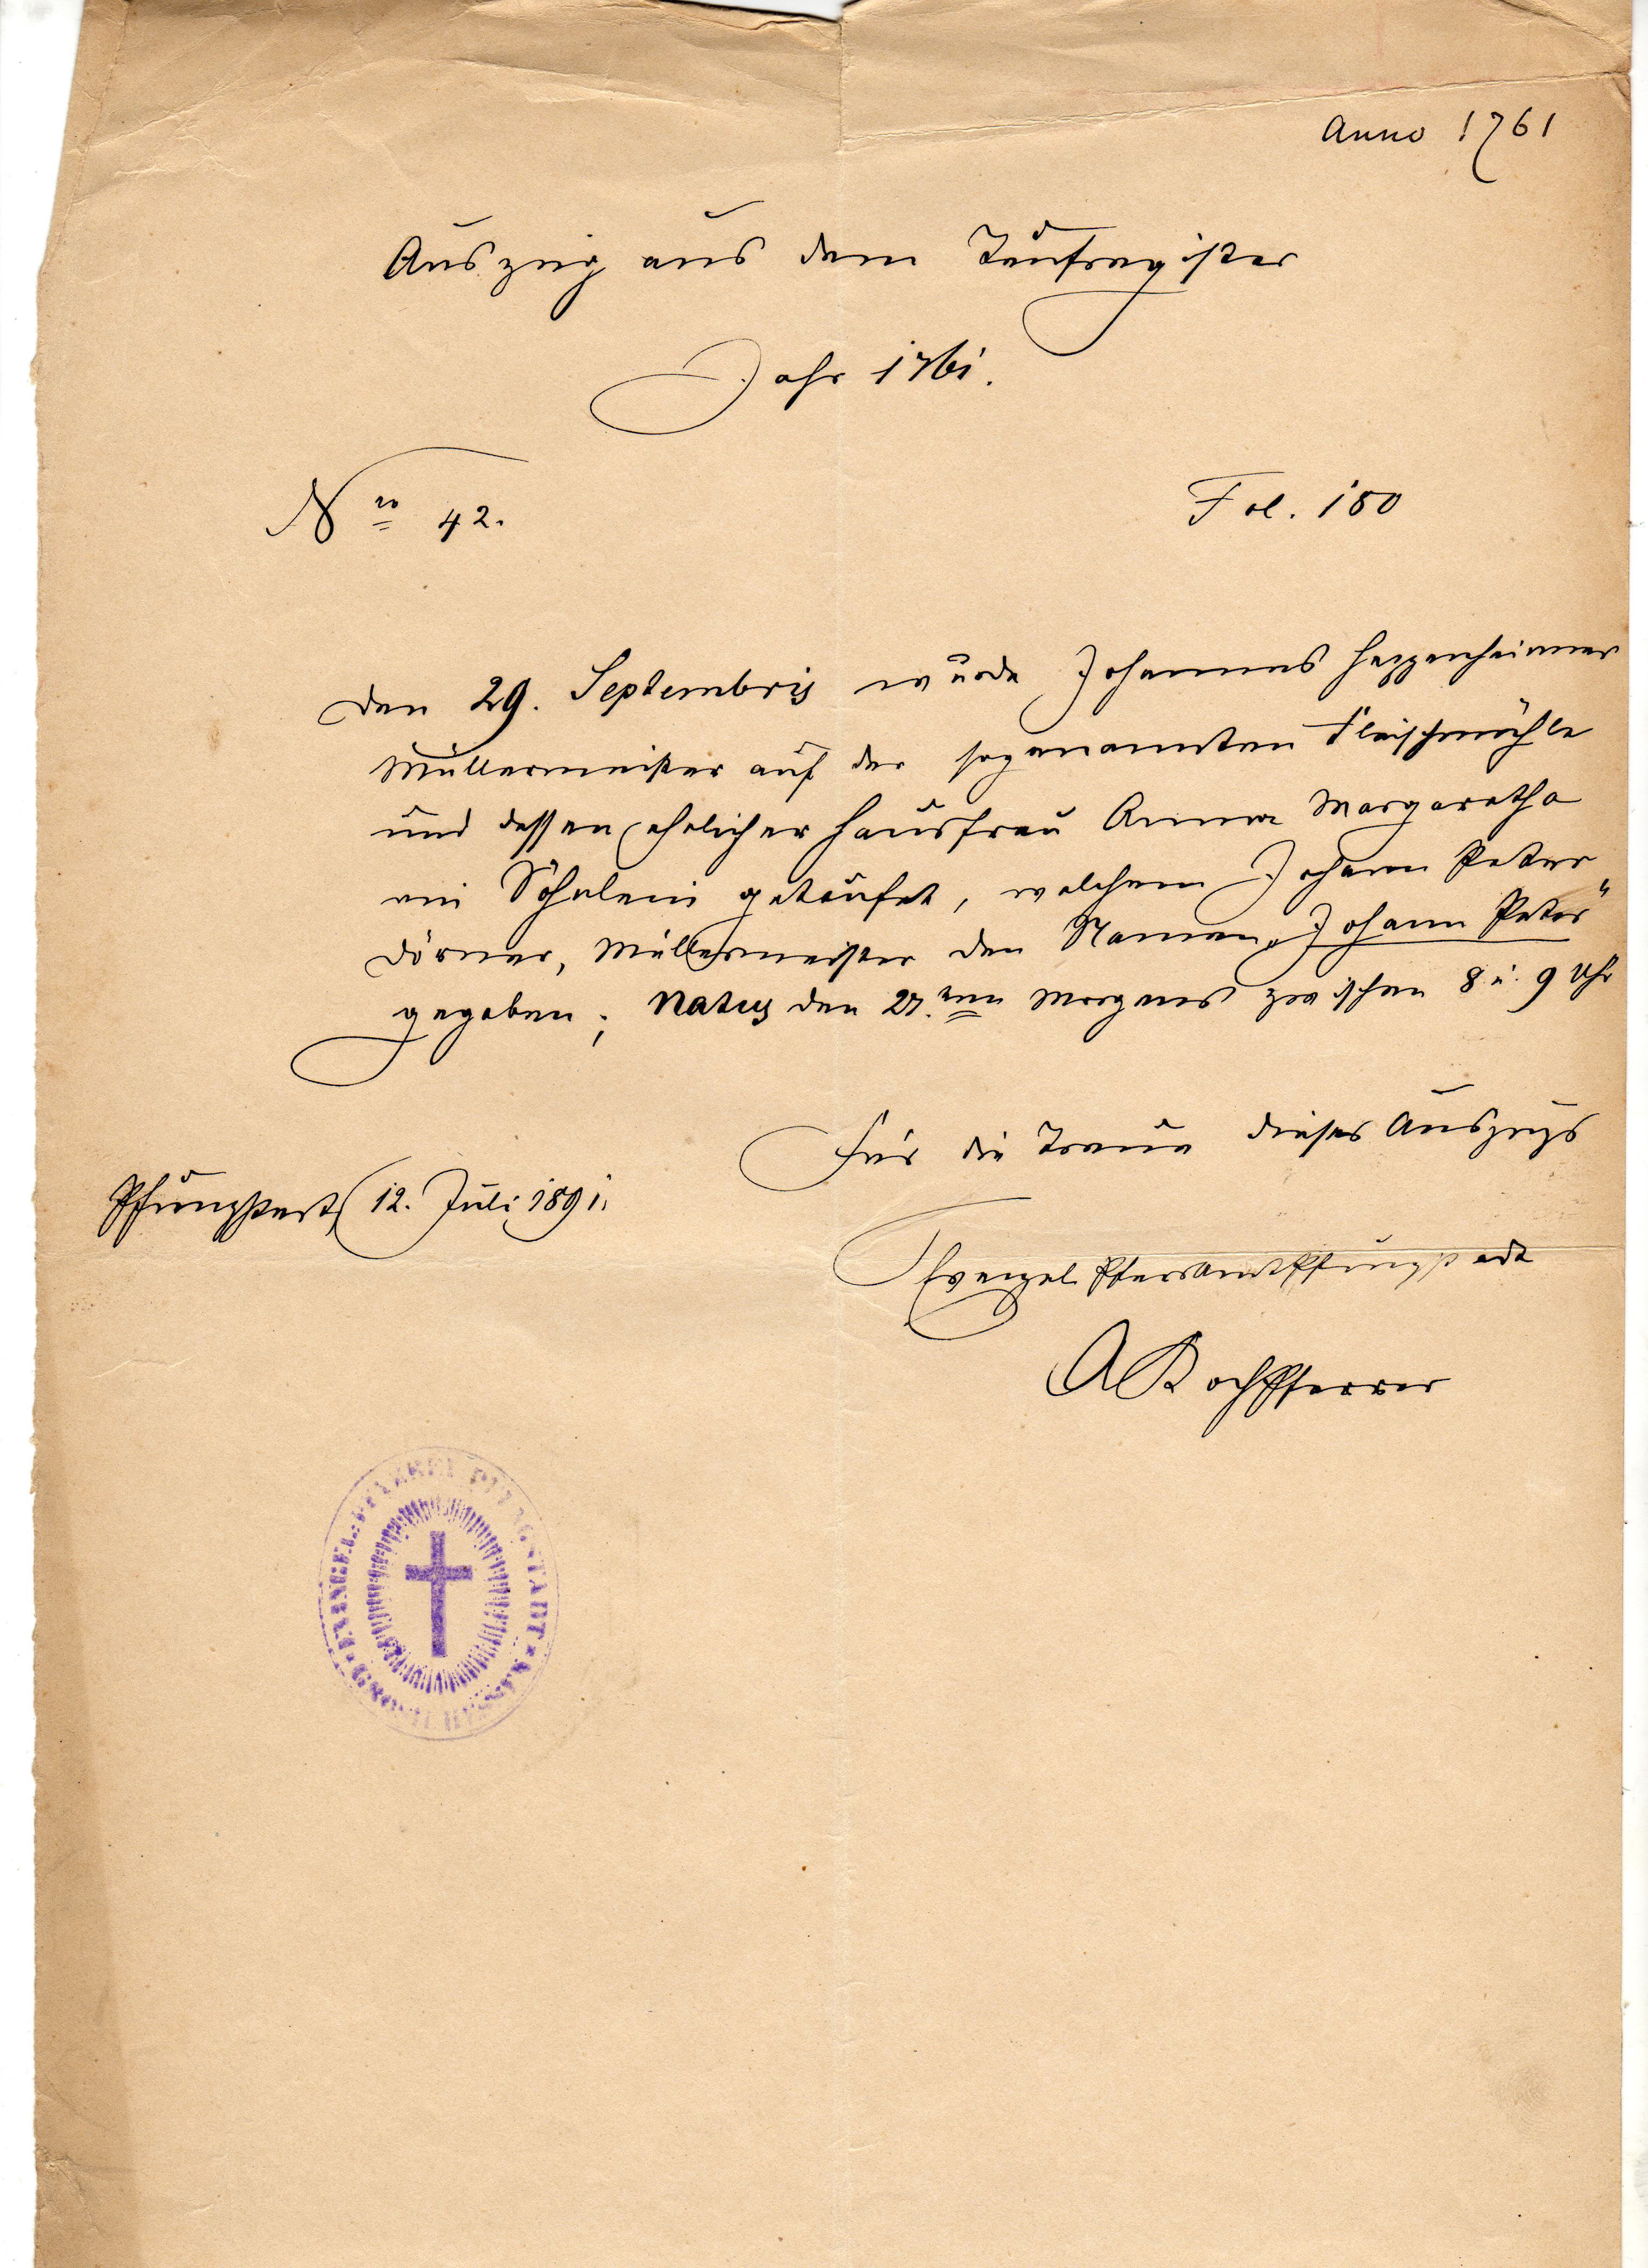 Anno 1761
Auszug aus dem Taufregister
Jahr 1761.
N ro 42.
Fol. 180
Den 29. Septembris wurde Johannes Heppenheimer
Müllermeister auf der sogenannten Fleischmühle
und dessen ehelicher Hausfrau Anna Margaretha
ein Söhnlein getaufet, welchem Johann Peter
Dörner, Müllermeister den Namen „Johann Peter"
gegeben; Natus den 27.ten Morgens zwischen 8 u. 9 Uhr
Für die Treue dieses Auszugs
Pfungstadt, 12. Juli 1891.
Evangel. Pfarramt Pfungstadt
A Koch Pfarrer
EVANGEL. PFARREI PFUNGSTADT